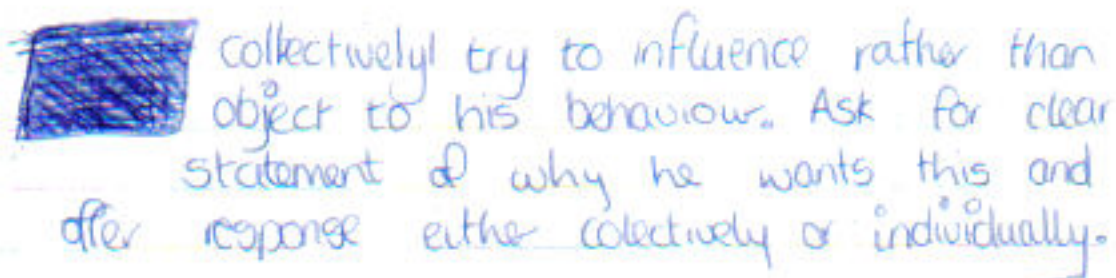 collectively try to influence rather than
object to his behaviour. Ask for clear
statement of why he wants this and
offer response either colectively or individually.